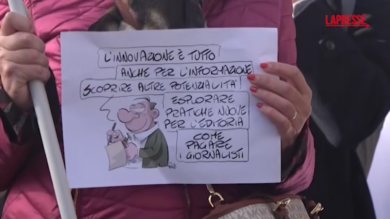 LAPRESSE
L'INNOVAZIONE È TUTTO
ANCHE PER L'INFORMAZIONE
SCOPRIRE ALTRE POTENZIALITÀ
ESPLORARE
PRATICHE NUOVE
PER L'EDITORIA
COME
PAGARE
I GIORNALISTI